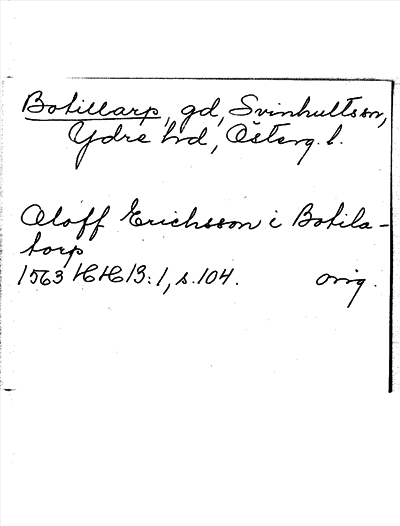 Botillarp, gd, Svinhults sn,
Ydre hd, Österg. l.
Oloff Erichsson i Botila-
torp
1563 HH13:1, s. 104. orig.